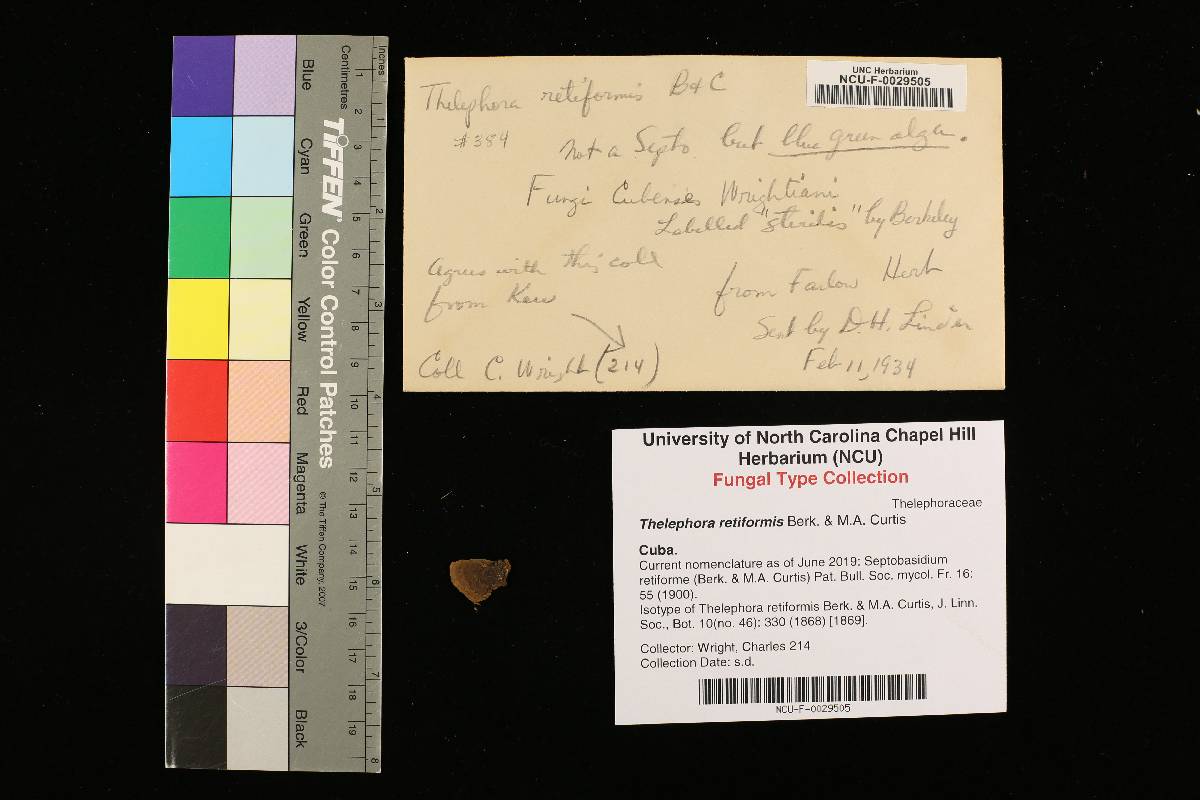 Inches
Centimetres
TIFFEN® Color Control Patches
© The Tiffen Company, 2007
Blue
Cyan
Green
Yellow
Red
Magenta
White
3/Color
Black
1 2 3 4 5 6 7 8 9 10 11 12 13 14 15 16 17 18 19
1 2 3 4 5 6 7 8
UNC Herbarium
NCU-F-0029505
Thelephora retiformis B & C
#384
Not a Septo. but blue green alga.
Fungi Cubenses Wrightiani
Labelled "sterilis" by Berkeley
Agrees with this coll
from Kew
from Farlow Herb
Sent by D.H. Linder
Feb 11, 1934
Coll C. Wright (214)
University of North Carolina Chapel Hill
Herbarium (NCU)
Fungal Type Collection
Thelephoraceae
Thelephora retiformis Berk. & M.A. Curtis
Cuba.
Current nomenclature as of June 2019: Septobasidium
retiforme (Berk. & M.A. Curtis) Pat. Bull. Soc. mycol. Fr. 16:
55 (1900).
Isotype of Thelephora retiformis Berk. & M.A. Curtis, J. Linn.
Soc., Bot. 10(no. 46): 330 (1868) [1869].
Collector: Wright, Charles 214
Collection Date: s.d.
NCU-F-0029505